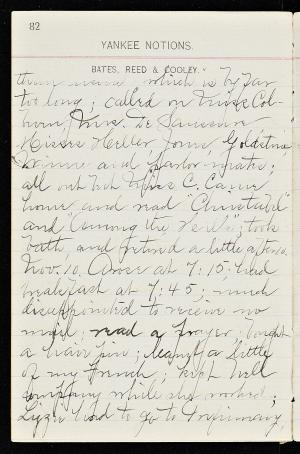 82
YANKEE NOTIONS.
BATES, REED & COOLEY."
which is by far
too long; called on Miss Col-
burn, Mrs. De
Misses Heller, Jones, Goldstine
Winne and
all out but Miss C. Came
home and read "Christabel"
and took
bath, and retired a little after 10.
Nov. 10. Arose at 7:15; had
breakfast at 7:45; much
disappointed to receive no
mail; read a prayer; bought
a hair pin; learned a little
of my French; kept Nell
company while she worked;
Lizzie had to go to Infirmary,